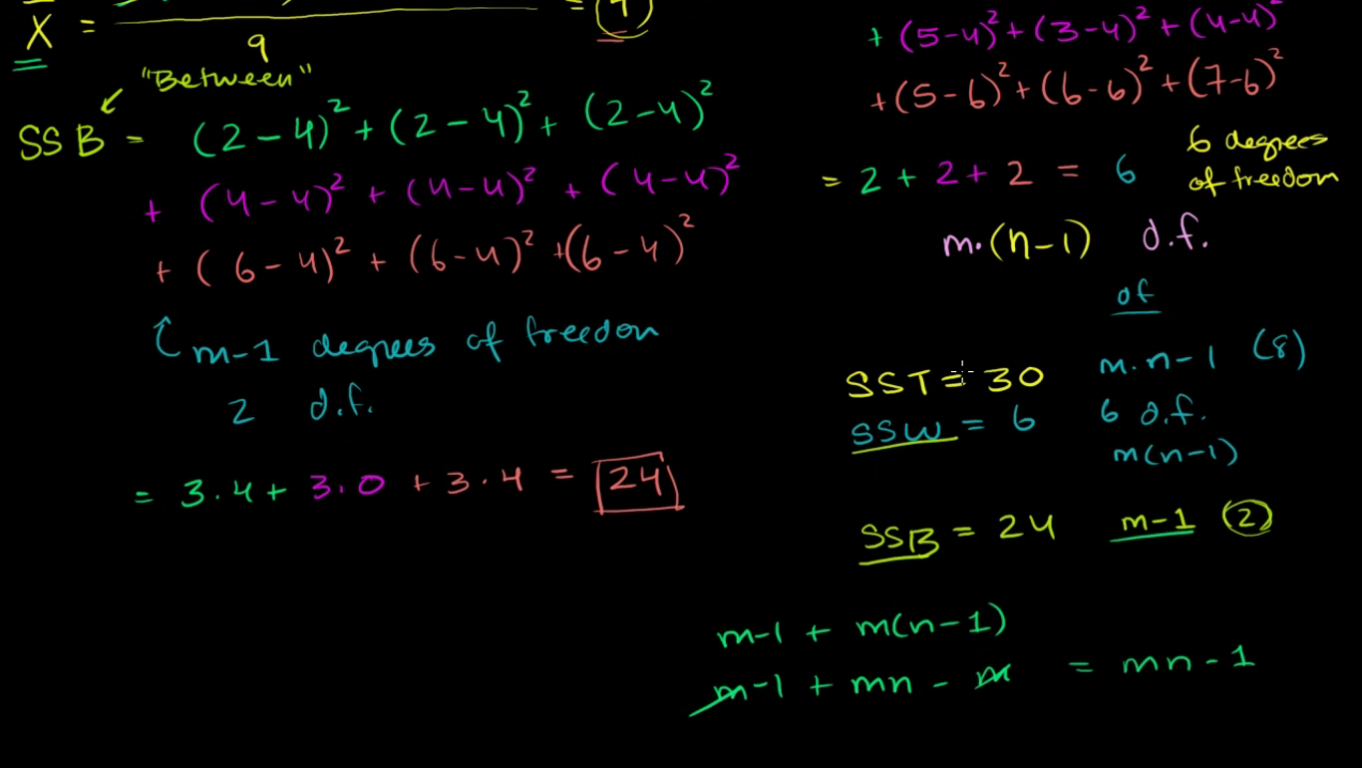 X̄ = ――― = 4
9
"Between"
SSB = (2-4)² + (2-4)² + (2-4)²
+ (4-4)² + (4-4)² + (4-4)²
+ (6-4)² + (6-4)² + (6-4)²
m-1 degrees of freedom
2 d.f.
= 3.4 + 3.0 + 3.4 = 24
+ (5-4)² + (3-4)² + (4-4)²
+ (5-6)² + (6-6)² + (7-6)²
= 2 + 2 + 2 = 6
6 degrees
of freedom
m.(n-1) d.f.
of
SST = 30 m.n-1 (8)
SSW = 6 6 d.f.
m(n-1)
SSB = 24 m-1 2
m-1 + m(n-1)
m-1 + mn - m = mn-1